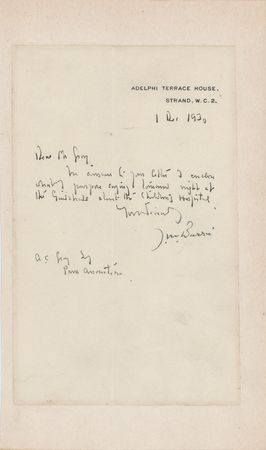 ADELPHI TERRACE HOUSE,
STRAND, W.C.2.
1 Dec 1930
Dear Mr Gray
In answer to your letter I enclose
what I purpose saying tomorrow night at
the Guildhall about the Children's Hospital
Yours sincerely
J. M. Barrie
A.C. Gray Esq
Press Association